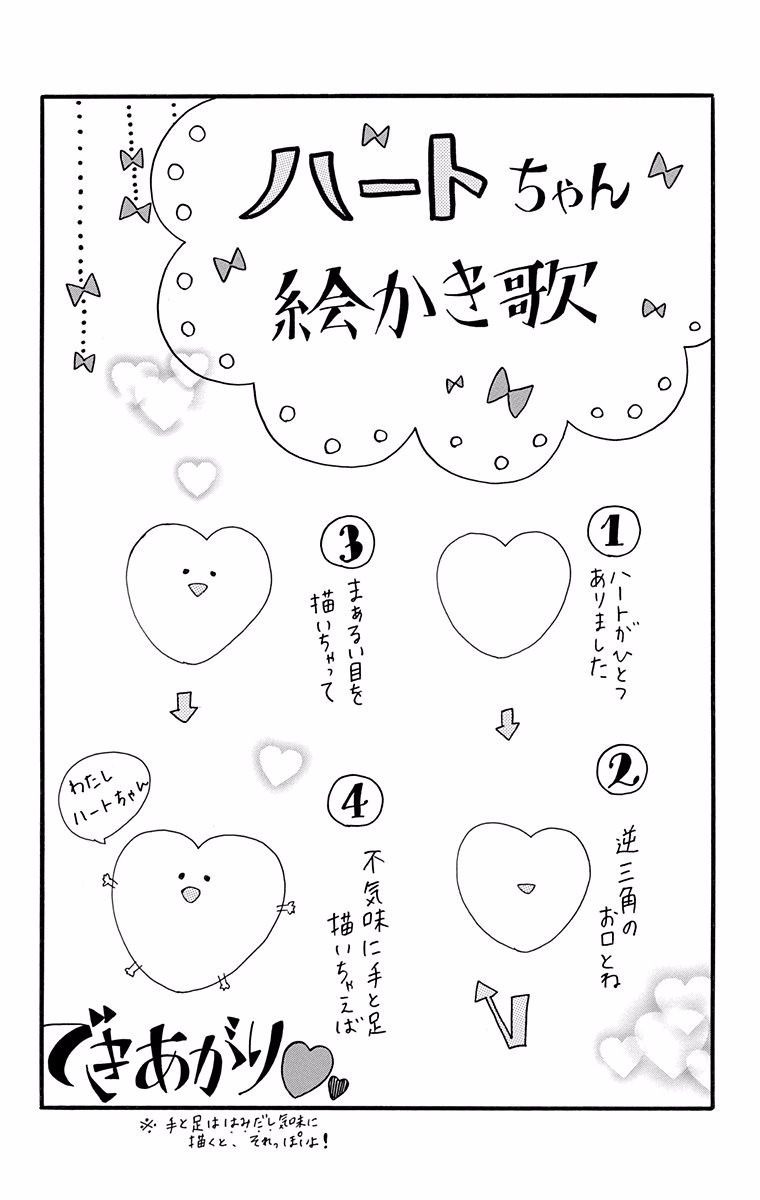 ハートちゃん
絵かき歌
1
ハートがひとつ
ありました
2
逆三角の
お口とね
3
まぁるい目を
描いちゃって
4
不気味に手と足
描いちゃえば
わたし
ハートちゃん
できあがり
※手と足ははみだし気味に
描くと、それっぽいよ!